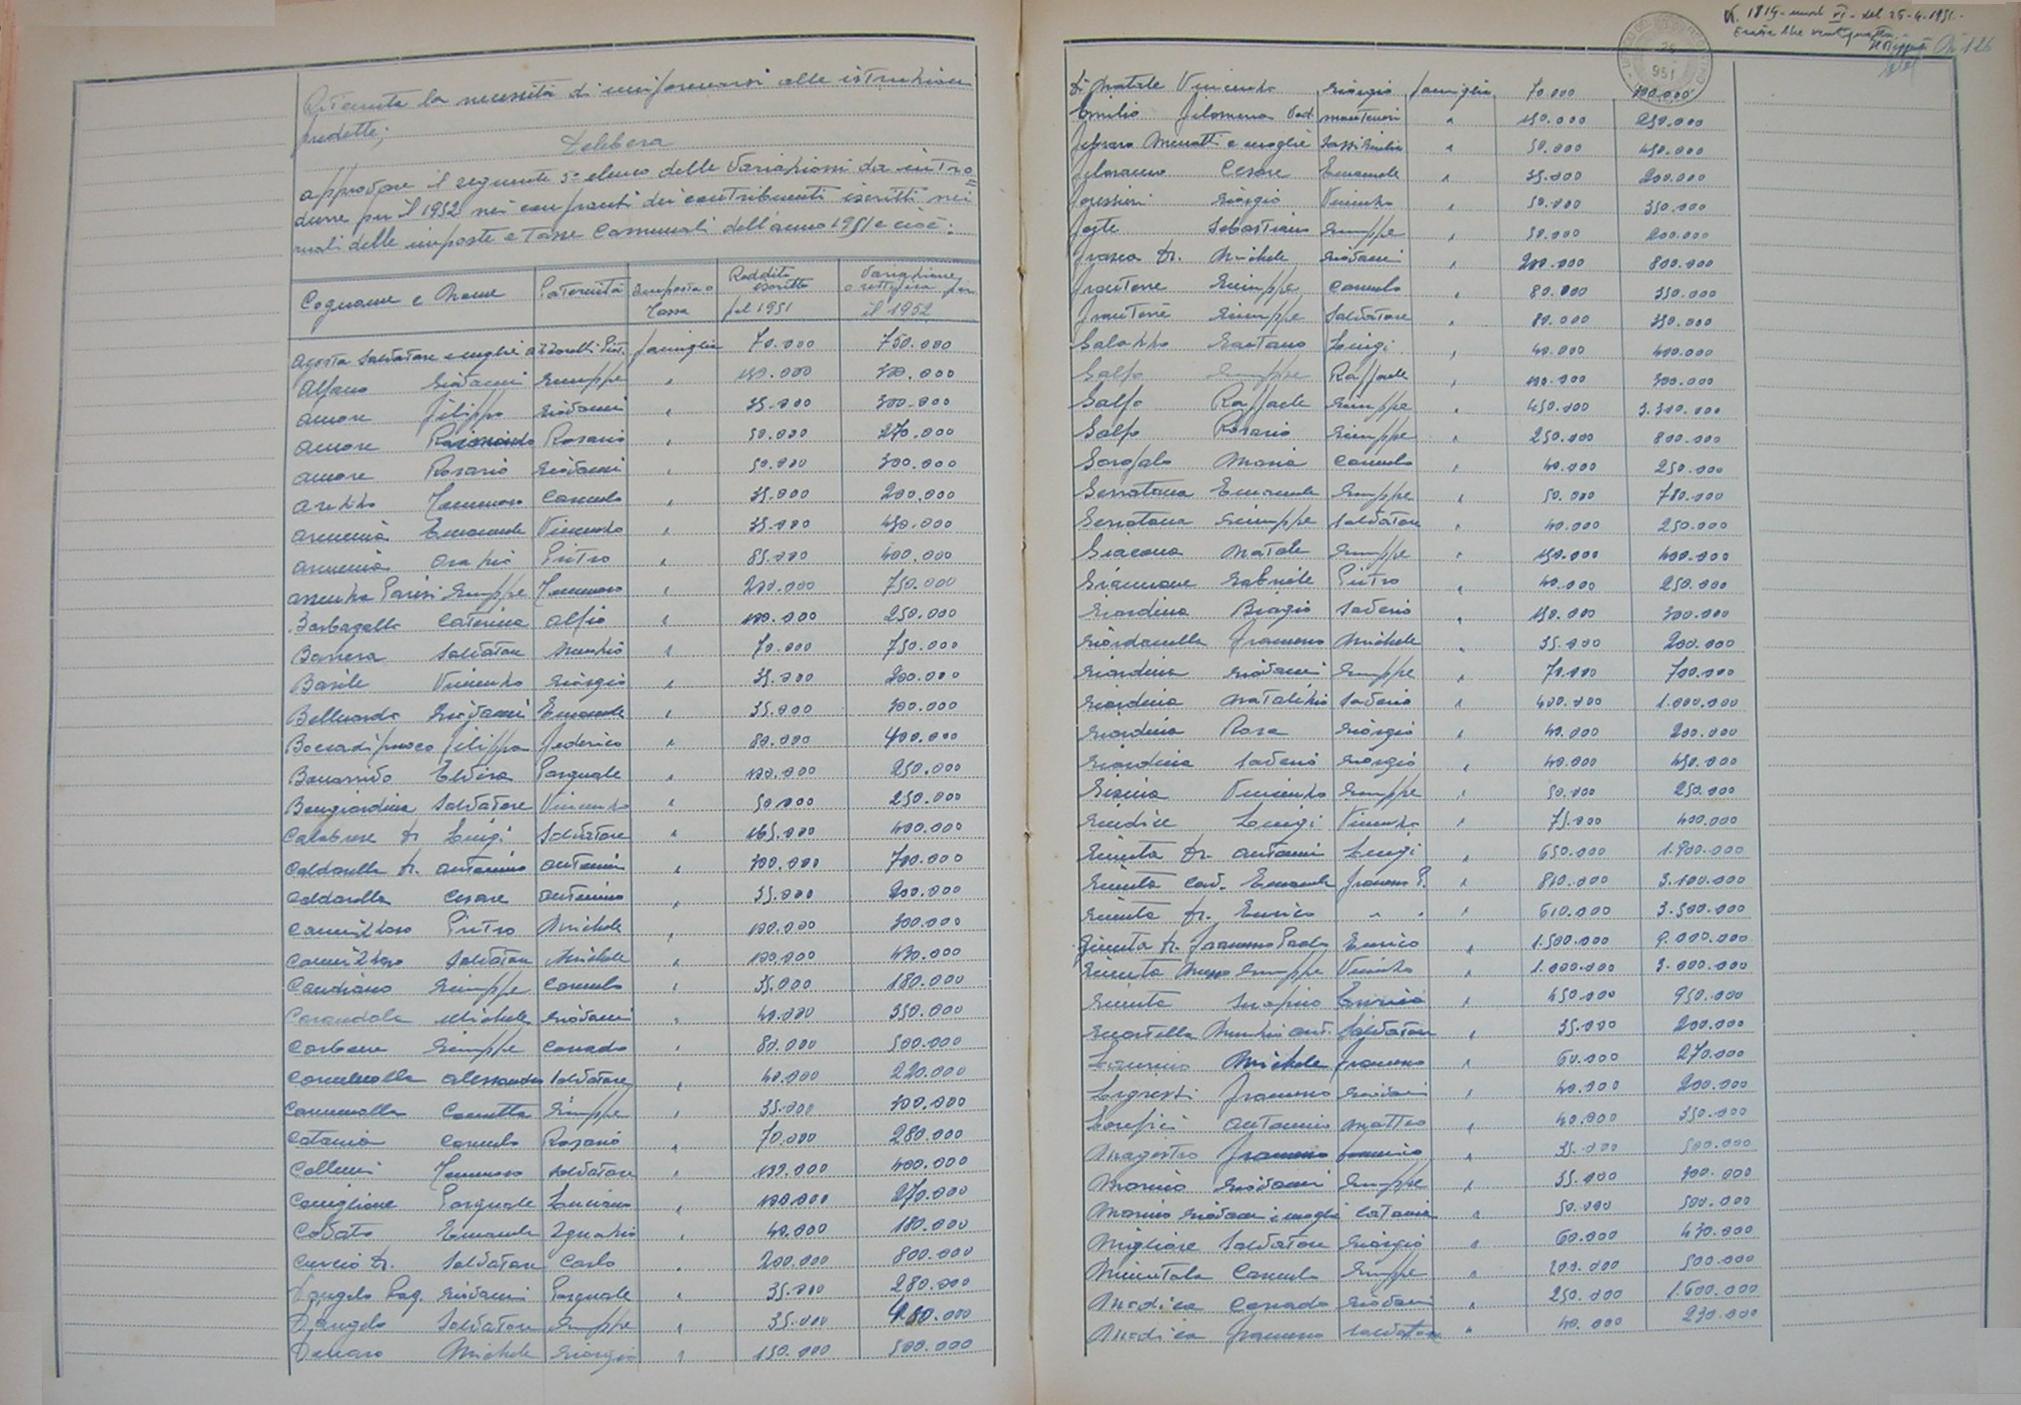 Ritenuta la necessità di uniformarsi alle istruzioni
predette;
Delibera
approvare il seguente 3° elenco delle Variazioni da intro=
durre per il 1952 nei confronti dei contribuenti iscritti nei
ruoli delle imposte e Tasse Comunali dell'anno 1951 e cioè:
Cognome e Nome Paternità Imposta o Tassa Reddito iscritto pel 1951 Variazione o rettifica per il 1952
Agosta Salvatore e moglie famiglia 70.000 750.000
Alfano Giovanni Giuseppe " 150.000 300.000
Amore Filippo Giovanni " 35.000 300.000
Amore Raimondo Rosario " 50.000 270.000
Amore Rosario Giovanni " 50.000 300.000
Arezzo Tommaso Carmelo " 35.000 200.000
Armenia Emanuele Vincenzo " 35.000 450.000
Armenia Orazio Pietro " 85.000 400.000
Assenza Parisi Giuseppe Tommaso " 200.000 750.000
Barbagallo Caterina Alfio " 100.000 250.000
Barrera Salvatore Nunzio " 70.000 750.000
Basile Vincenzo Giorgio " 35.000 200.000
Belluardo Giovanni Emanuele " 35.000 300.000
Boccadifuoco Filippo Federico " 80.000 400.000
Bonarrivo Elvira Pasquale " 100.000 250.000
Bongiardina Salvatore Vincenzo " 50.000 250.000
Calabrese Dr. Luigi Salvatore " 165.000 400.000
Caldarella Dr. Antonino Antonino " 300.000 700.000
Caldarella Cesare Antonino " 35.000 200.000
Pietro Michele " 100.000 300.000
Salvatore Michele " 100.000 450.000
Candiano Giuseppe Carmelo " 35.000 180.000
Michele Giovanni " 40.000 350.000
Carbone Giuseppe Corrado " 80.000 500.000
Alessandro Salvatore " 40.000 220.000
Concetta Giuseppe " 35.000 300.000
Catania Carmelo Rosario " 70.000 280.000
Tommaso Salvatore " 100.000 400.000
Coniglione Pasquale Luciano " 100.000 270.000
Covato Emanuele Ignazio " 40.000 180.000
Curcio Dr. Salvatore Carlo " 200.000 800.000
D'Angelo Rag. Giovanni Pasquale " 35.000 280.000
D'Angelo Salvatore Giuseppe " 35.000
Denaro Michele Giorgio " 150.000 500.000
N. 1819 - mod. VI - del 26-4-1951.
Esatte lire
951
N° 126
Di Natale Vincenzo Giorgio famiglia 70.000
Emilio Filomena Ved. " 150.000 250.000
Ferraro Menotti e moglie " 50.000 450.000
Cesare Emanuele " 35.000 200.000
Giorgio Vincenzo " 50.000 350.000
Sebastiano Giuseppe " 50.000 200.000
Frasca Dr. Michele Giovanni " 200.000 800.000
Giuseppe Carmelo " 80.000 350.000
Giuseppe Salvatore " 80.000 350.000
Galazzo Gaetano Luigi " 40.000 400.000
Galfo Giuseppe Raffaele " 100.000 300.000
Galfo Raffaele Giuseppe " 450.000 3.300.000
Galfo Rosario Giuseppe " 250.000 800.000
Garofalo Maria Carmelo " 40.000 250.000
Serratana Emanuele Giuseppe " 50.000 780.000
Serratana Giuseppe Salvatore " 40.000 250.000
Giacona Natale Giuseppe " 150.000 400.000
Giannone Gabriele Pietro " 40.000 250.000
Giardina Biagio Saverio " 150.000 300.000
Giordanella Francesco Michele " 35.000 200.000
Giardina Giovanni Giuseppe " 70.000 700.000
Giardina Natalizio Saverio " 400.000 1.000.000
Giardina Rosa Giorgio " 40.000 200.000
Giardina Saverio Giorgio " 40.000 450.000
Vincenzo Giuseppe " 50.000 250.000
Giudice Luigi Vincenzo " 75.000 400.000
Giunta Dr. Antonio Luigi " 650.000 1.900.000
Giunta Cav. Emanuele Francesco P. " 810.000 3.100.000
Giunta Dr. Enrico " " " 610.000 3.500.000
Giunta Dr. Francesco Paolo Enrico " 1.500.000 9.000.000
Giunta Giuseppe " 1.000.000 3.000.000
Giunta Serafino Enrico " 450.000 950.000
Guastella Nunzio Ant. Salvatore " 35.000 200.000
Michele Francesco " 60.000 270.000
Francesco Giovanni " 40.000 200.000
Antonino Matteo " 40.000 350.000
Magostro Francesco " 35.000 500.000
Marino Giovanni Giuseppe " 35.000 300.000
Marino Giovanni e moglie Catania " 50.000 500.000
Migliore Salvatore Giorgio " 60.000 430.000
Minutola Carmelo Giuseppe " 200.000 500.000
Modica Corrado Giovanni " 250.000 1.600.000
Modica Francesco Salvatore " 40.000 230.000